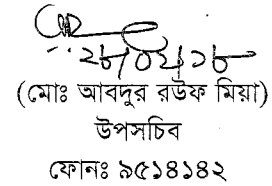 ২৮/০২/১৮
(মোঃ আবদুর রউফ মিয়া)
উপসচিব
ফোনঃ ৯৫১৪১৪২